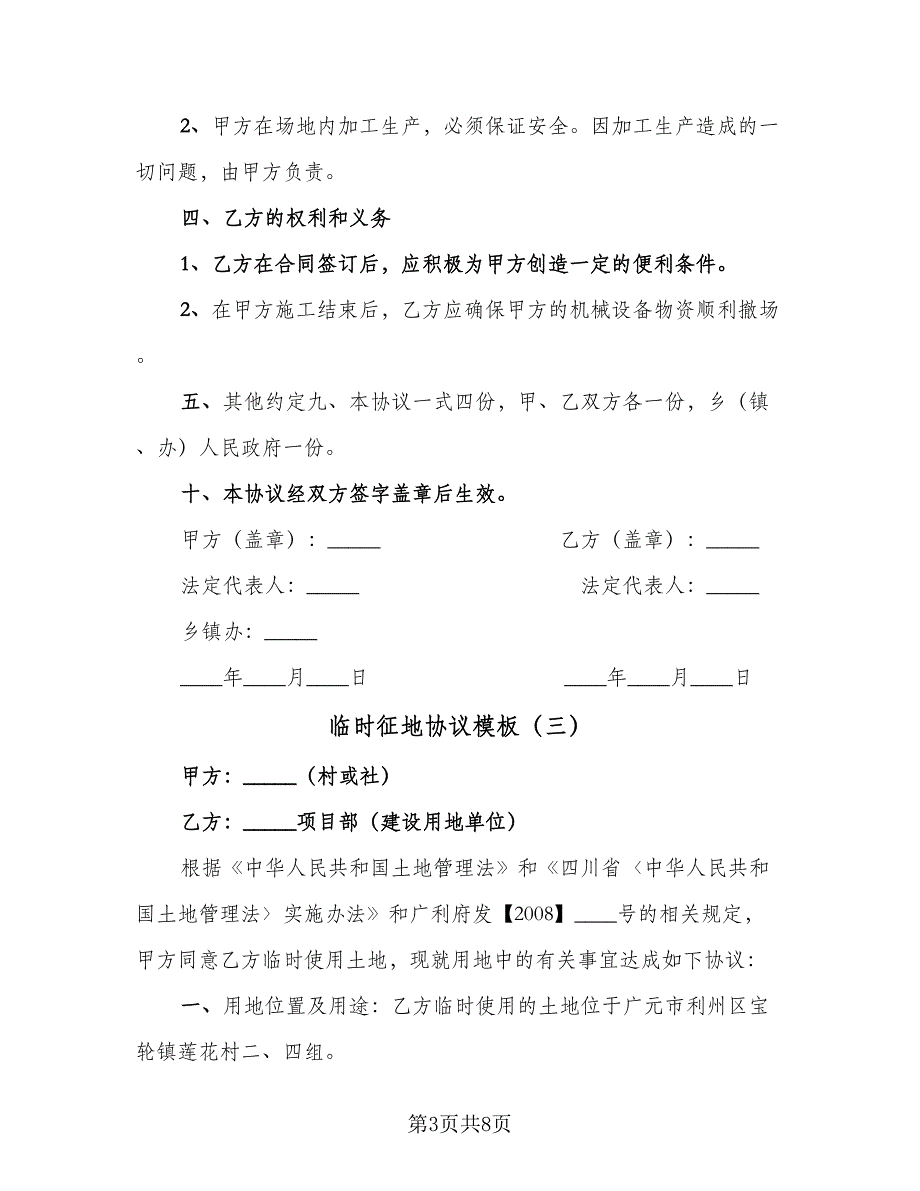 2、甲方在场地内加工生产，必须保证安全。因加工生产造成的一
切问题，由甲方负责。
四、乙方的权利和义务
1、乙方在合同签订后，应积极为甲方创造一定的便利条件。
2、在甲方施工结束后，乙方应确保甲方的机械设备物资顺利撤场
。
五、其他约定九、本协议一式四份，甲、乙双方各一份，乡（镇
、办）人民政府一份。
十、本协议经双方签字盖章后生效。
甲方（盖章）：_____ 乙方（盖章）：_____
法定代表人：_____ 法定代表人：_____
乡镇办：_____
____年____月____日 ____年____月____日
临时征地协议模板（三）
甲方：_____（村或社）
乙方：_____项目部（建设用地单位）
根据《中华人民共和国土地管理法》和《四川省〈中华人民共和
国土地管理法〉实施办法》和广利府发【2008】____号的相关规定，
甲方同意乙方临时使用土地，现就用地中的有关事宜达成如下协议：
一、用地位置及用途：乙方临时使用的土地位于广元市利州区宝
轮镇莲花村二、四组。
第3页共8页